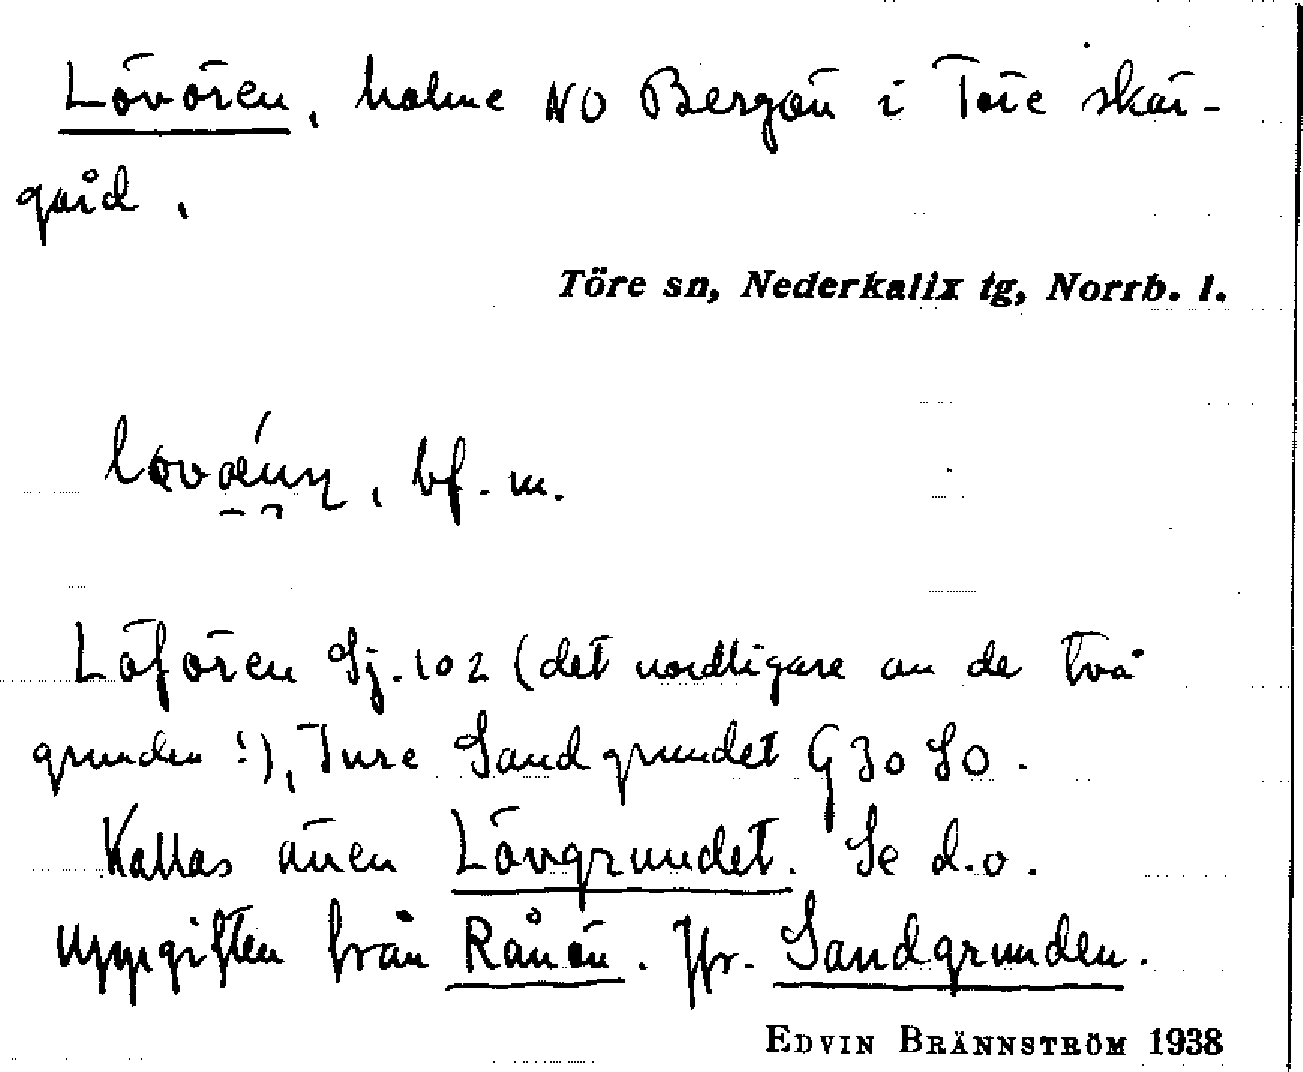 Lövören, holme NO Bergön i Töre skär-
gård.
Töre sn, Nederkalix tg, Norrb. l.
bf. m.
Löfören Sj. 102 (det nordligare av de två
grunden!), Inre Sandgrundet G 30 SO.
Kallas även Lövgrundet. Se d.o.
Uppgiften från Rånön. Jfr. Sandgrunden.
EDVIN BRÄNNSTRÖM 1938